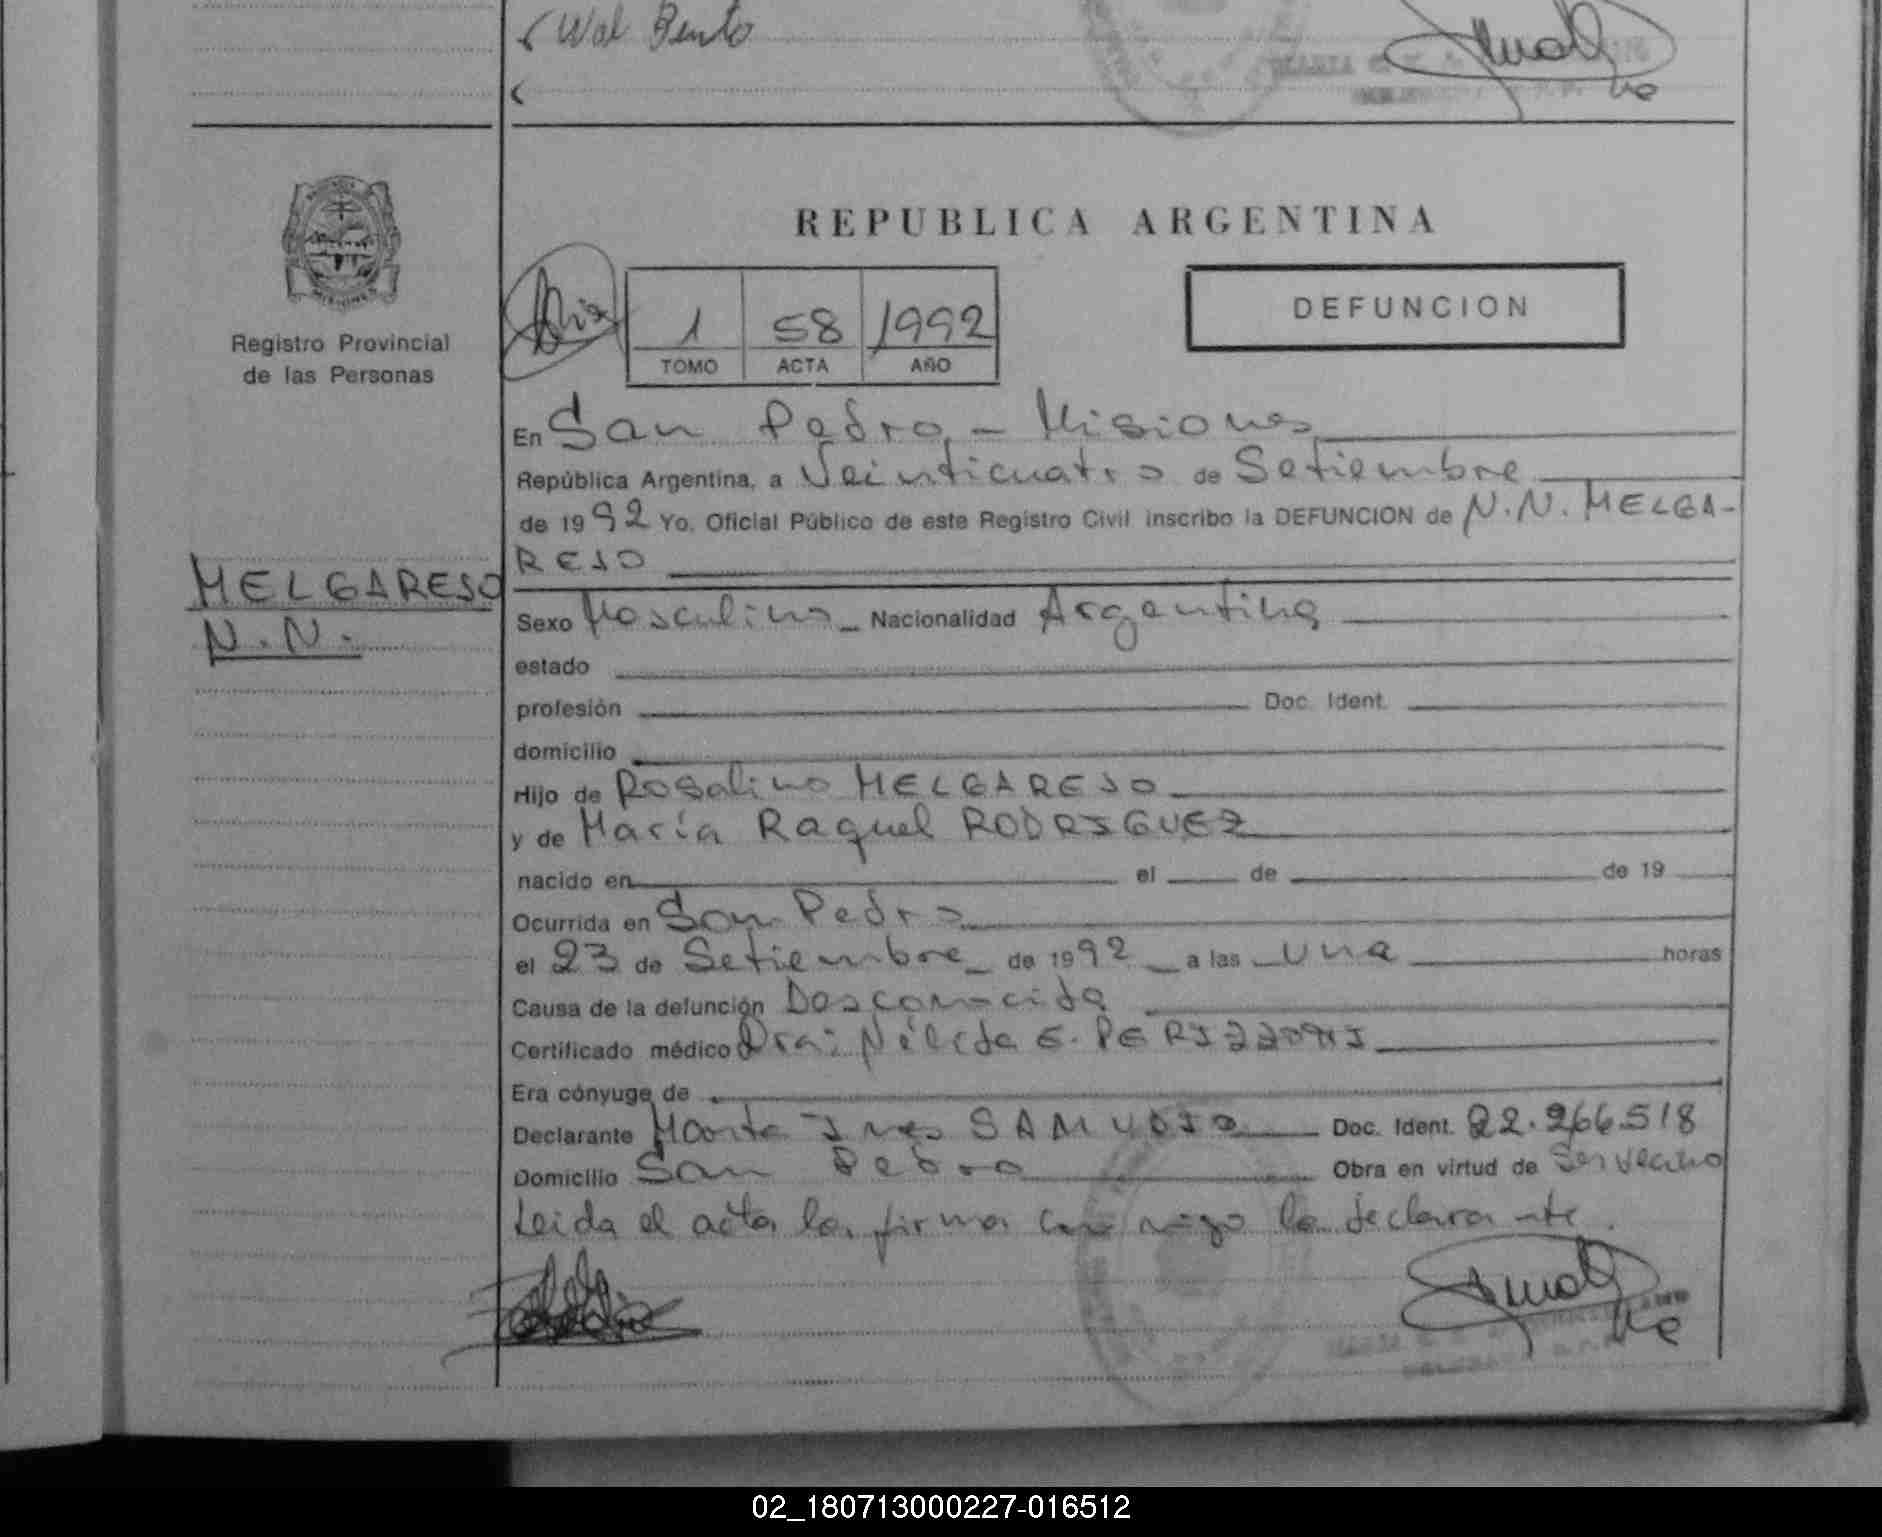 Wal Bento
REPUBLICA ARGENTINA
DEFUNCION
1 58 1992
TOMO ACTA AÑO
Registro Provincial
de las Personas
En San Pedro - Misiones
República Argentina, a Veinticuatro de Setiembre
de 1992 Yo, Oficial Público de este Registro Civil inscribo la DEFUNCION de N.N. MELGA-
RESO
MELGARESO
N.N.
Sexo Masculino Nacionalidad Argentina
estado
profesión Doc. Ident.
domicilio
Hijo de Rosalino MELGARESO
y de María Raquel RODRIGUEZ
nacido en el de de 19
Ocurrida en San Pedro
el 23 de Setiembre de 1992 a las una horas
Causa de la defunción Desconocida
Certificado médico Dra: Nélida E. PERIZZONI
Era cónyuge de
Declarante Ines Doc. Ident. 22.266.518
Domicilio San Pedro Obra en virtud de
Leida el acta la firma conmigo la declarante.
02_180713000227-016512